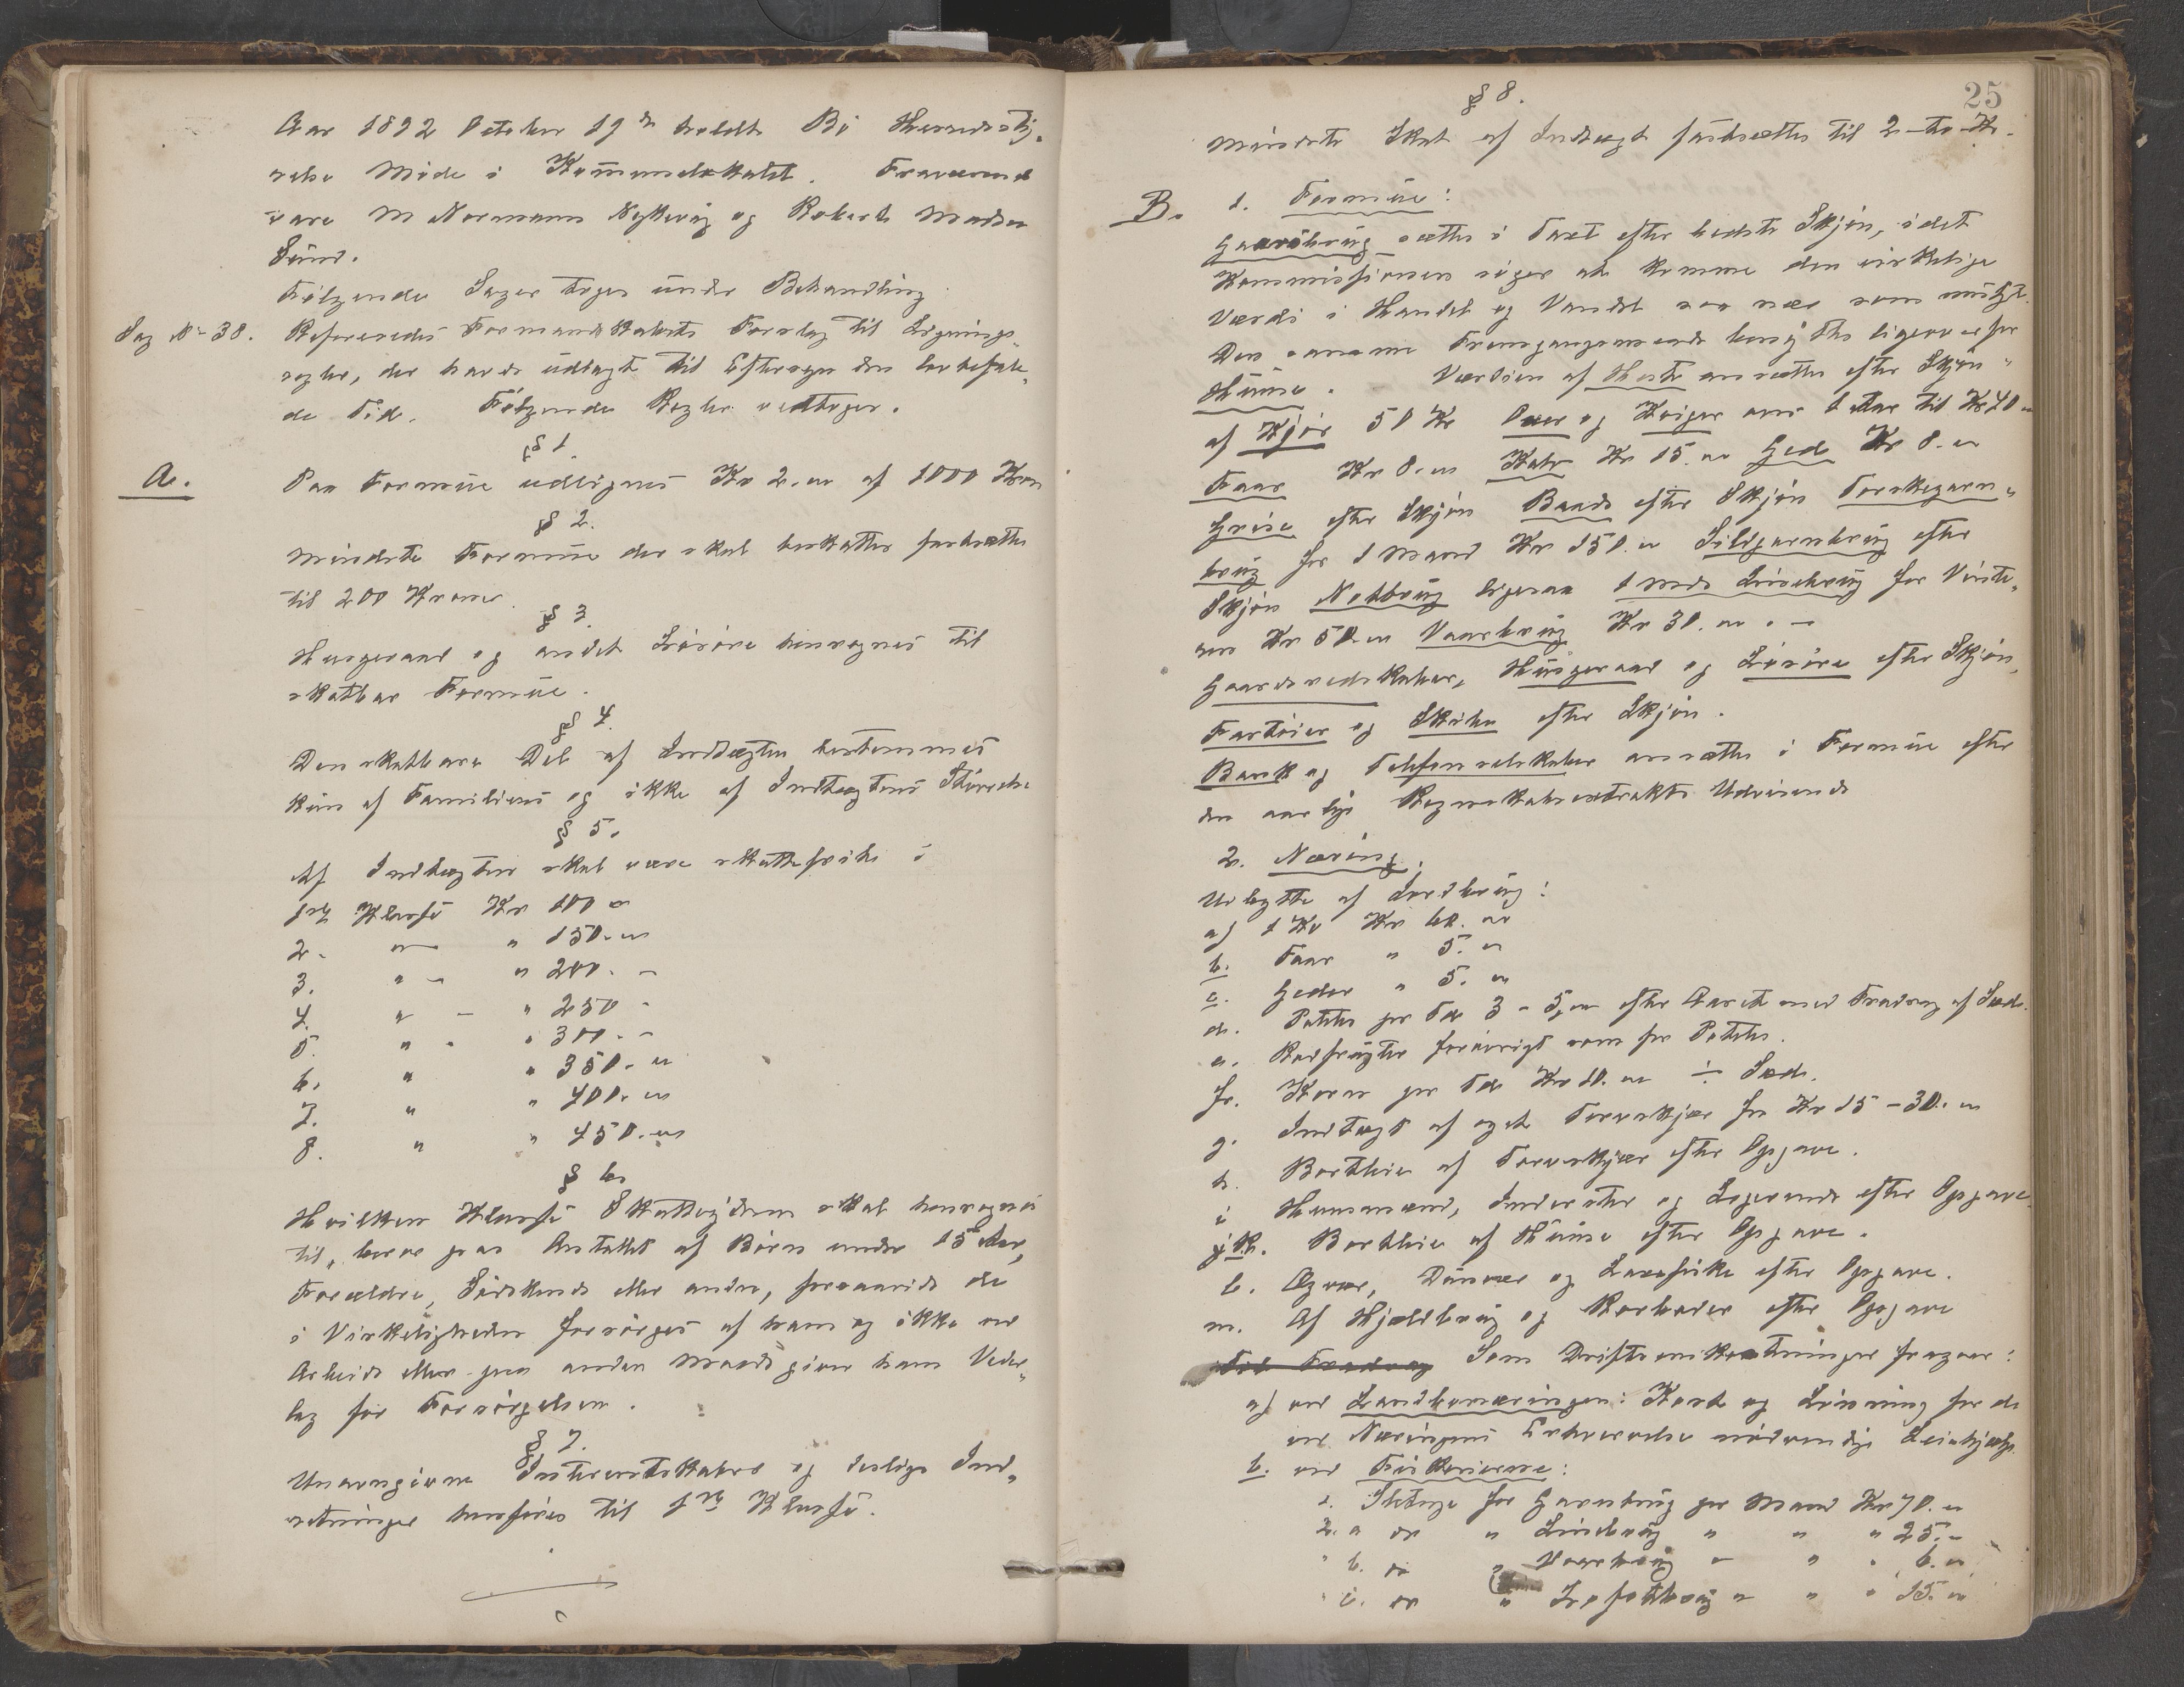 Aar 1892 October 19de holdte Bø Herredssty„
relse Møde i Kommunelokalet. Fraværende
vare M Normann Nykvåg og Robert Madsen
Sund.
Følgende Sager toges under Behandling
Sag No 38. Refereredes Formandskabets Forslag til Lignings„
regler, der havde udlagt til Eftersyn den lovbefale„
de Tid. Følgende Regler vedtoges.
§ 1.
A. Paa Formue udlignes Kr 2.00 af 1000 Kroner
§ 2.
Mindste Formue der skal beskattes fastsættes
til 200 Kroner.
§ 3.
Husgeraad og andet Løsøre henregnes til
skatbar Formue.
§ 4.
Den skatbare Del af Indtægten bestemmes
kun af Familiens og ikke af Indtægtens Størrelse
§ 5.
Af Indtægten skal være skattefrihe i
1ste Klasse Kr 100 00
2. — " 150.00
3. " — " 200. —
4. " — " 250 -
5. " - " 300. —
6. " " 350. 00
7. " " 400. 00
8. " " 450. 00
§ 6
Hvilken Klasse Skatteyderen skal henregnes
til, beror paa Antallet af Børn under 15 Aar,
Forældre, Sødskende eller andre, forsaavidt de
i Virkeligheden forsørges af ham og ikke ved
Arbeide eller paa anden Maade giver ham Veder„
lag for Forsørgelsen.
§ 7.
Umyndige Interessentskaber og deslige Ind„
retninger henføres til 1ste Klasse.
25
§ 8.
Mindste Skat af Indtægt fastsættes til 2 - to - Kr.
B. 1. Formue:
Gaardbrug sættes i Taxt efter bedste Skjøn, idet
Kommissionen søger at komme den virkelige
Værdi i Handel og Vandel saa nær som muligt.
Den samme Fremgangsmaade benyttes ligeoverfor
Huse. Værdien af Heste ansættes efter Skjøn„
af Kjør 50 Kr Oxer og Kviger over 1 Aar til Kr 40 00
Faar Kr 8.00 Kalv Kr 15.00 Gjed Kr 8.00
Grise efter Skjøn Baade efter Skjøn Torskegarn„
brug for 1 Mand Kr 150.00 Sildgarnbrug efter
Skjøn Notbrug ligesaa 1 Mands Linebrug for Vinte„
ren Kr 50.00 Vaarbrug Kr 30.00 . —
Gaardsredskaber, Husgeraad og Løsøre efter Skjøn„
Fartøier og Skibe efter Skjøn.
Bank og Telefonselskaber ansættes i Formue efter
den aarlige Regnskabsextrakts Udvisende
2. Næring.
Udbytte af Jordbrug:
a) 1 Ko Kr 60. 00
b. Faar " 5. 00
c. Geder " 5. 00
d. Poteter pr Tde 3 - 5,00 efter Aaret med Fradrag af Sæd.
e. Rodfrugter forøvrigt som for Poteter.
f. Korn pr Tde Kr 10.00 ÷ Sæd.
g. Indtægt af eget Torvskjær fra Kr 15 - 30.00
h. Bortleie af Torvskjær efter Opgave.
i Husmænd, Inderster og Logerende efter Opgave.
j k. Bortleie af Huse efter Opgave.
l. Egvær, Dunvær og Laxefiske efter Opgave.
m. Af Hjeldbrug og Rorboder efter Opgave
Til Fradrag Som Driftsomkostninger fragaar:
a) ved Landbonæringen: Kost og Lønning for de
ved Næringens Erhvervelse nødvendige Leiehjælp.
b. ved Fiskerierne:
1. Slitage for Garnbrug pr Mand Kr 70.00
2. a do " Linebrug " " " 25.-
" b. do " Vaarbrug " " " 6.00
" c. do " Lofotbrug " " " 15.00